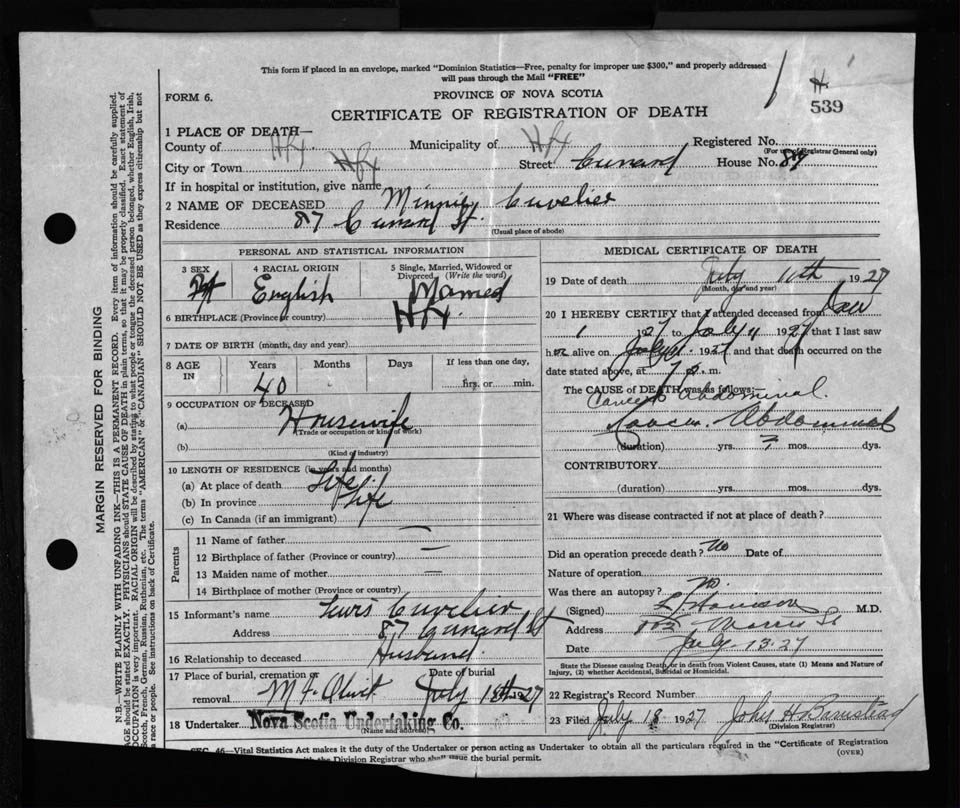 This form if placed in an envelope, marked "Dominion Statistics—Free, penalty for improper use $300," and properly addressed
will pass through the Mail "FREE"
H
539
FORM 6.
PROVINCE OF NOVA SCOTIA
CERTIFICATE OF REGISTRATION OF DEATH
1 PLACE OF DEATH—
County of Hfx. Municipality of Hfx Registered No.
(For use of Registrar General only)
City or Town Hfx Street Cunard House No. 87
If in hospital or institution, give name
2 NAME OF DECEASED Minnie Cuvelier
Residence 87 Cunard St.
(Usual place of abode)
PERSONAL AND STATISTICAL INFORMATION
3 SEX
4 RACIAL ORIGIN English
5 Single, Married, Widowed or Divorced (Write the word) Married
6 BIRTHPLACE (Province or country) Hfx.
7 DATE OF BIRTH (month, day and year)
8 AGE IN Years Months Days If less than one day,
40 hrs. or min.
9 OCCUPATION OF DECEASED
(a) Housewife
(Trade or occupation or kind of work)
(b)
(Kind of industry)
10 LENGTH OF RESIDENCE (in years and months)
(a) At place of death Life.
(b) In province Life
(c) In Canada (if an immigrant)
Parents
11 Name of father —
12 Birthplace of father (Province or country) —
13 Maiden name of mother —
14 Birthplace of mother (Province or country)
15 Informant's name Lewis Cuvelier
Address 87 Cunard St
16 Relationship to deceased Husband.
17 Place of burial, cremation or removal Mt Olivet Date of burial July 13th 1927
18 Undertaker Nova Scotia Undertaking Co.
(Name and address)
MEDICAL CERTIFICATE OF DEATH
19 Date of death July 11th 1927
(Month, day and year)
20 I HEREBY CERTIFY that I attended deceased from
1927 to July 1927 that I last saw
alive on July 1927 and that death occurred on the
date stated above, at 7 p. m.
The CAUSE of DEATH was as follows:—
Cancer Abdominal.
Cancer. Abdominal
(duration) yrs. 7 mos. dys.
CONTRIBUTORY
(duration) yrs. mos. dys.
21 Where was disease contracted if not at place of death?
Did an operation precede death? No Date of
Nature of operation
Was there an autopsy? No.
(Signed) M.D.
Address Morris St
Date July 13. 27
State the Disease causing Death, or in death from Violent Causes, state (1) Means and Nature of
Injury, (2) whether Accidental, Suicidal or Homicidal.
22 Registrar's Record Number
23 Filed July 18 1927 John H Barnstead
(Division Registrar)
SEC. 46—Vital Statistics Act makes it the duty of the Undertaker or person acting as Undertaker to obtain all the particulars required in the "Certificate of Registration
(OVER)
with the Division Registrar who shall issue the burial permit.
MARGIN RESERVED FOR BINDING
N.B.—WRITE PLAINLY WITH UNFADING INK—THIS IS A PERMANENT RECORD. Every item of information should be carefully supplied.
AGE should be stated EXACTLY. PHYSICIANS should STATE CAUSE OF DEATH in plain terms, so that it may be properly classified. Exact statement of
OCCUPATION is very important. RACIAL ORIGIN will be described by stating to what people or tongue the deceased person belonged, whether English, Irish,
Scotch, French, German, Russian, Ruthenian, etc. The terms "AMERICAN" or "CANADIAN" SHOULD NOT BE USED as they express citizenship but not
a race or people. See instructions on back of Certificate.